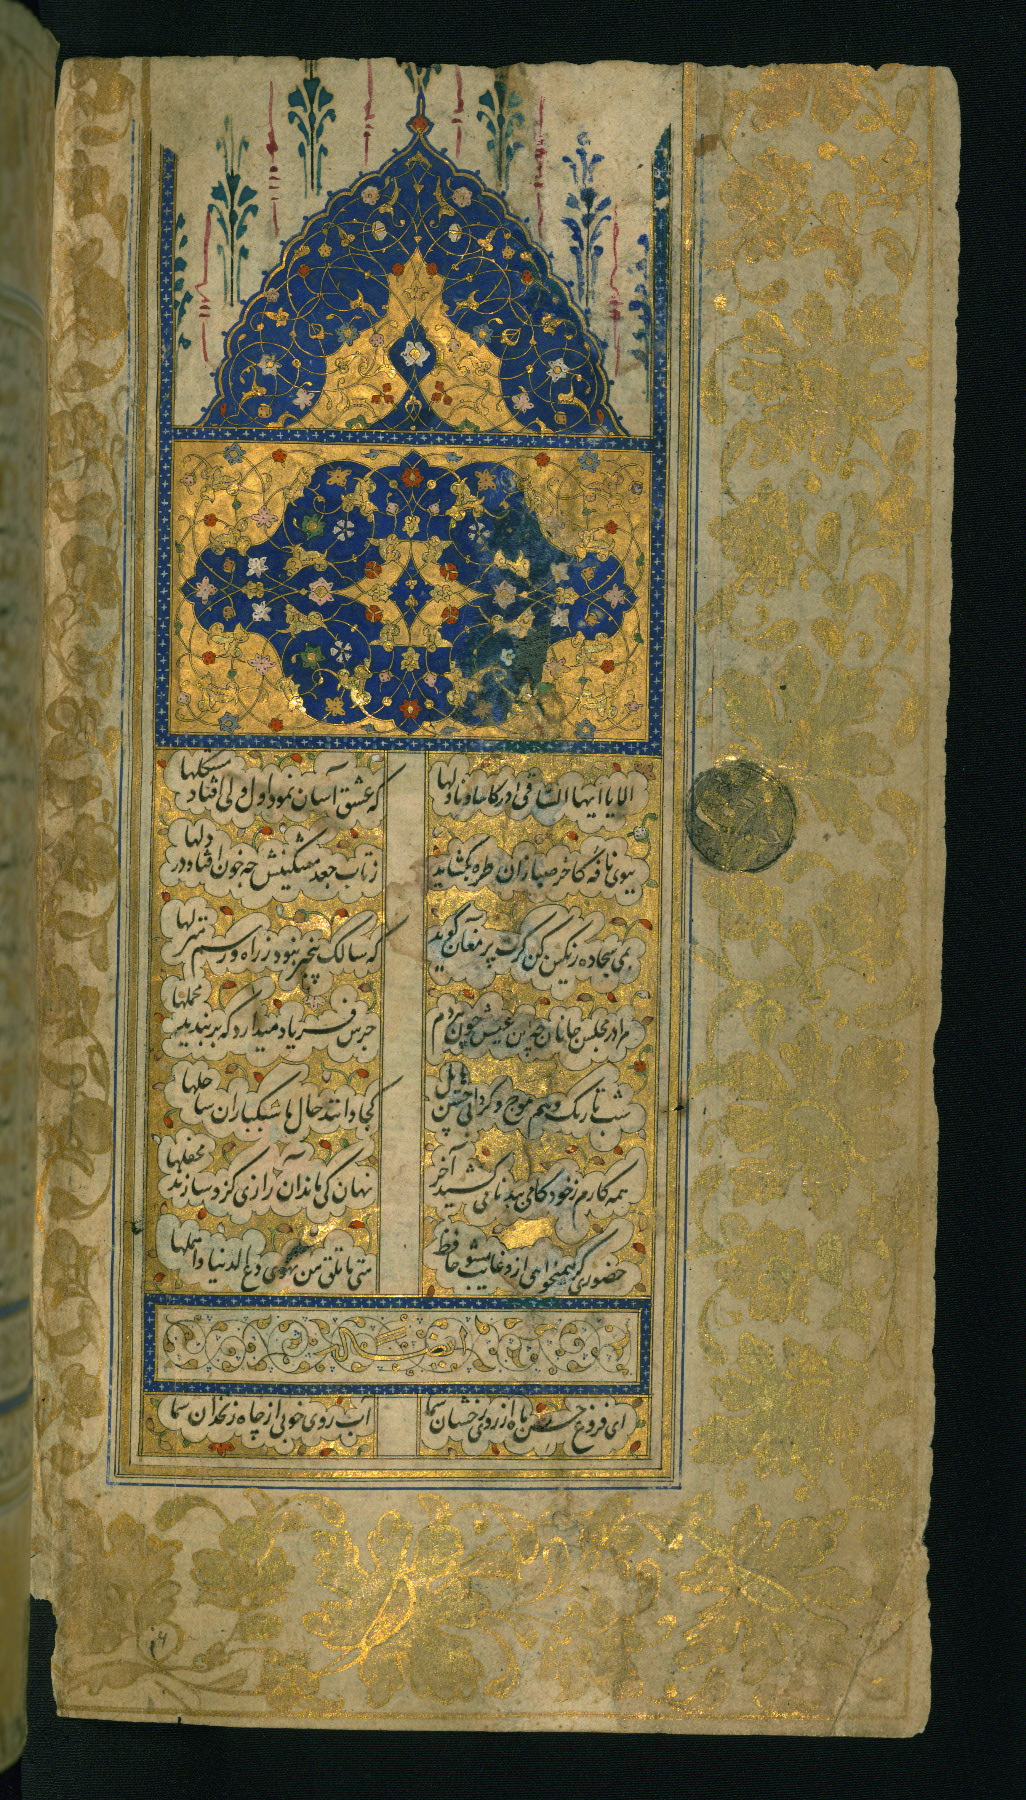 الا یا ایها الساقی ادر کاسا و ناولها که عشق آسان نمود اول ولی افتاد مشکلها
ببوی نافهٔ کاخر صبا زان طره بکشاید ز تاب جعد مشکینش چه خون افتاد در دلها
بمی سجاده رنکین کن کرت پیر مغان کوید که سالک بیخبر نبود ز راه و رسم منزلها
مرا در مجلس جانان چه امن عیش چون هر دم جرس فریاد میدارد که بربندید محملها
شب تاریک و بیم موج و کردابی چنین هایل کجا دانند حال ما سبکباران ساحلها
همه کارم ز خود کامی ببدنامی کشید آخر نهان کی ماند آن رازی کزو سازند محفلها
حضوری کر همیخواهی ازو غایب مشو حافظ متی ما تلق من تهوی دع الدنیا و اهملها
ایضا له
ای فروغ حسن ماه از روی رخشان شما آب روی خوبی از چاه زنخدان شما